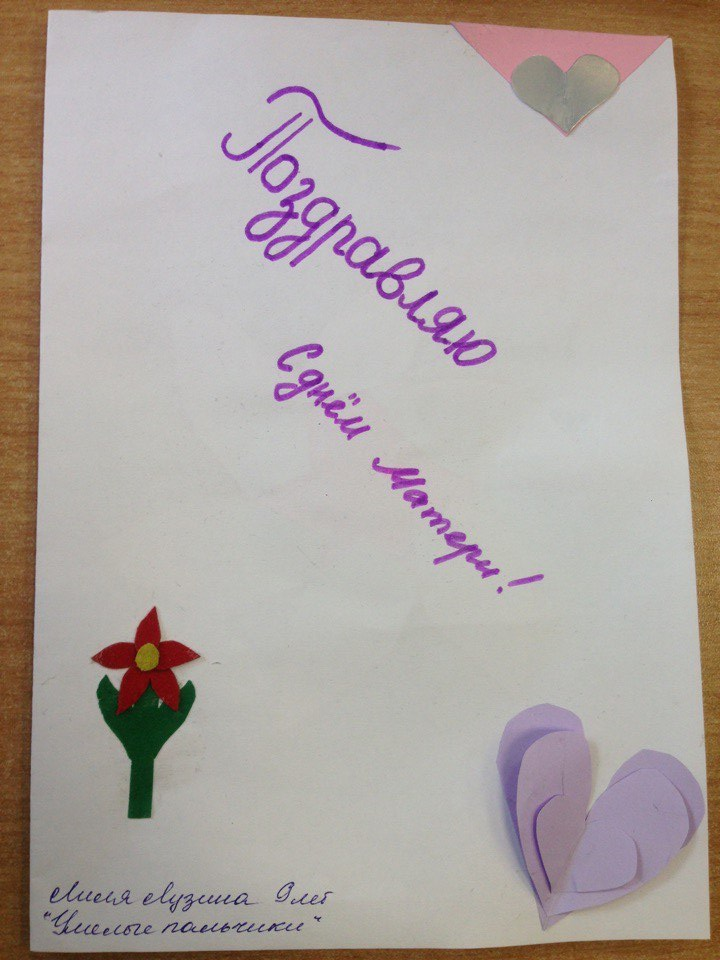 Поздравляю
С днём Матери!
Лиля Лузина 9 лет
"Умелые пальчики"